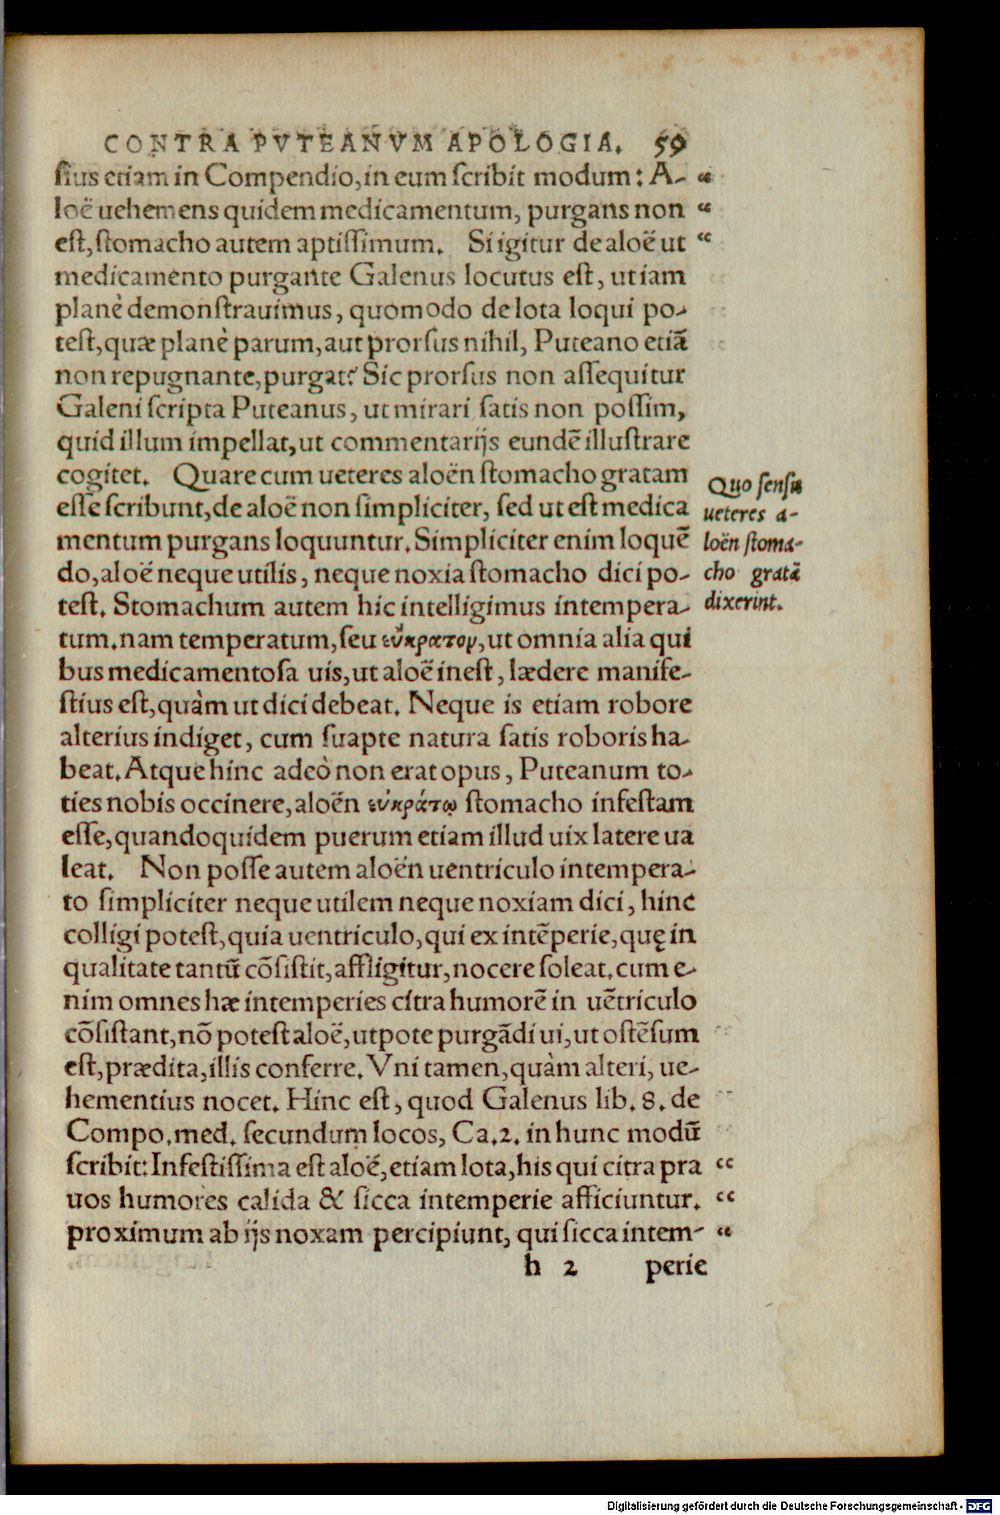 CONTRA PVTEANVM APOLOGIA. 59
ſius etiam in Compendio, in eum ſcribit modum: A- “
loë uehemens quidem medicamentum, purgans non “
eſt, ſtomacho autem aptiſſimum. Si igitur de aloë ut “
medicamento purgante Galenus locutus eſt, ut iam
planè demonſtrauimus, quomodo de lota loqui po-
teſt, quæ planè parum, aut prorſus nihil, Puteano etiã
non repugnante, purgat? Sic prorſus non aſſequitur
Galeni ſcripta Puteanus, ut mirari ſatis non poſſim,
quid illum impellat, ut commentarijs eundẽ illuſtrare
cogitet. Quare cum ueteres aloën ſtomacho gratam
eſſe ſcribunt, de aloë non ſimpliciter, ſed ut eſt medica
mentum purgans loquuntur. Simpliciter enim loquẽ
do, aloë neque utilis, neque noxia ſtomacho dici po-
teſt. Stomachum autem hic intelligimus intempera-
tum. nam temperatum, ſeu εὔκρατον, ut omnia alia qui
bus medicamentoſa uis, ut aloë ineſt, lædere manife-
ſtius eſt, quàm ut dici debeat. Neque is etiam robore
alterius indiget, cum ſuapte natura ſatis roboris ha-
beat. Atque hinc adeò non erat opus, Puteanum to-
ties nobis occinere, aloën εὐκράτῳ ſtomacho infeſtam
eſſe, quandoquidem puerum etiam illud uix latere ua
leat. Non poſſe autem aloën uentriculo intempera-
to ſimpliciter neque utilem neque noxiam dici, hinc
colligi poteſt, quia uentriculo, qui ex intẽperie, quę in
qualitate tantũ cõſiſtit, affligitur, nocere ſoleat. cum e-
nim omnes hæ intemperies citra humorẽ in uẽtriculo
cõſiſtant, nõ poteſt aloë, utpote purgãdi ui, ut oſtẽſum
eſt, prædita, illis conferre. Vni tamen, quàm alteri, ue-
hementius nocet. Hinc eſt, quod Galenus lib. 8. de
Compo. med. ſecundum locos, Ca. 2. in hunc modũ
ſcribit: Infeſtiſſima eſt aloë, etiam lota, his qui citra pra “
uos humores calida & ſicca intemperie afficiuntur. “
proximum ab ijs noxam percipiunt, qui ſicca intem- “
h 2 perie
Quo ſenſu
ueteres a-
loën ſtoma-
cho gratã
dixerint.
Digitalisierung gefördert durch die Deutsche Forschungsgemeinschaft - DFG